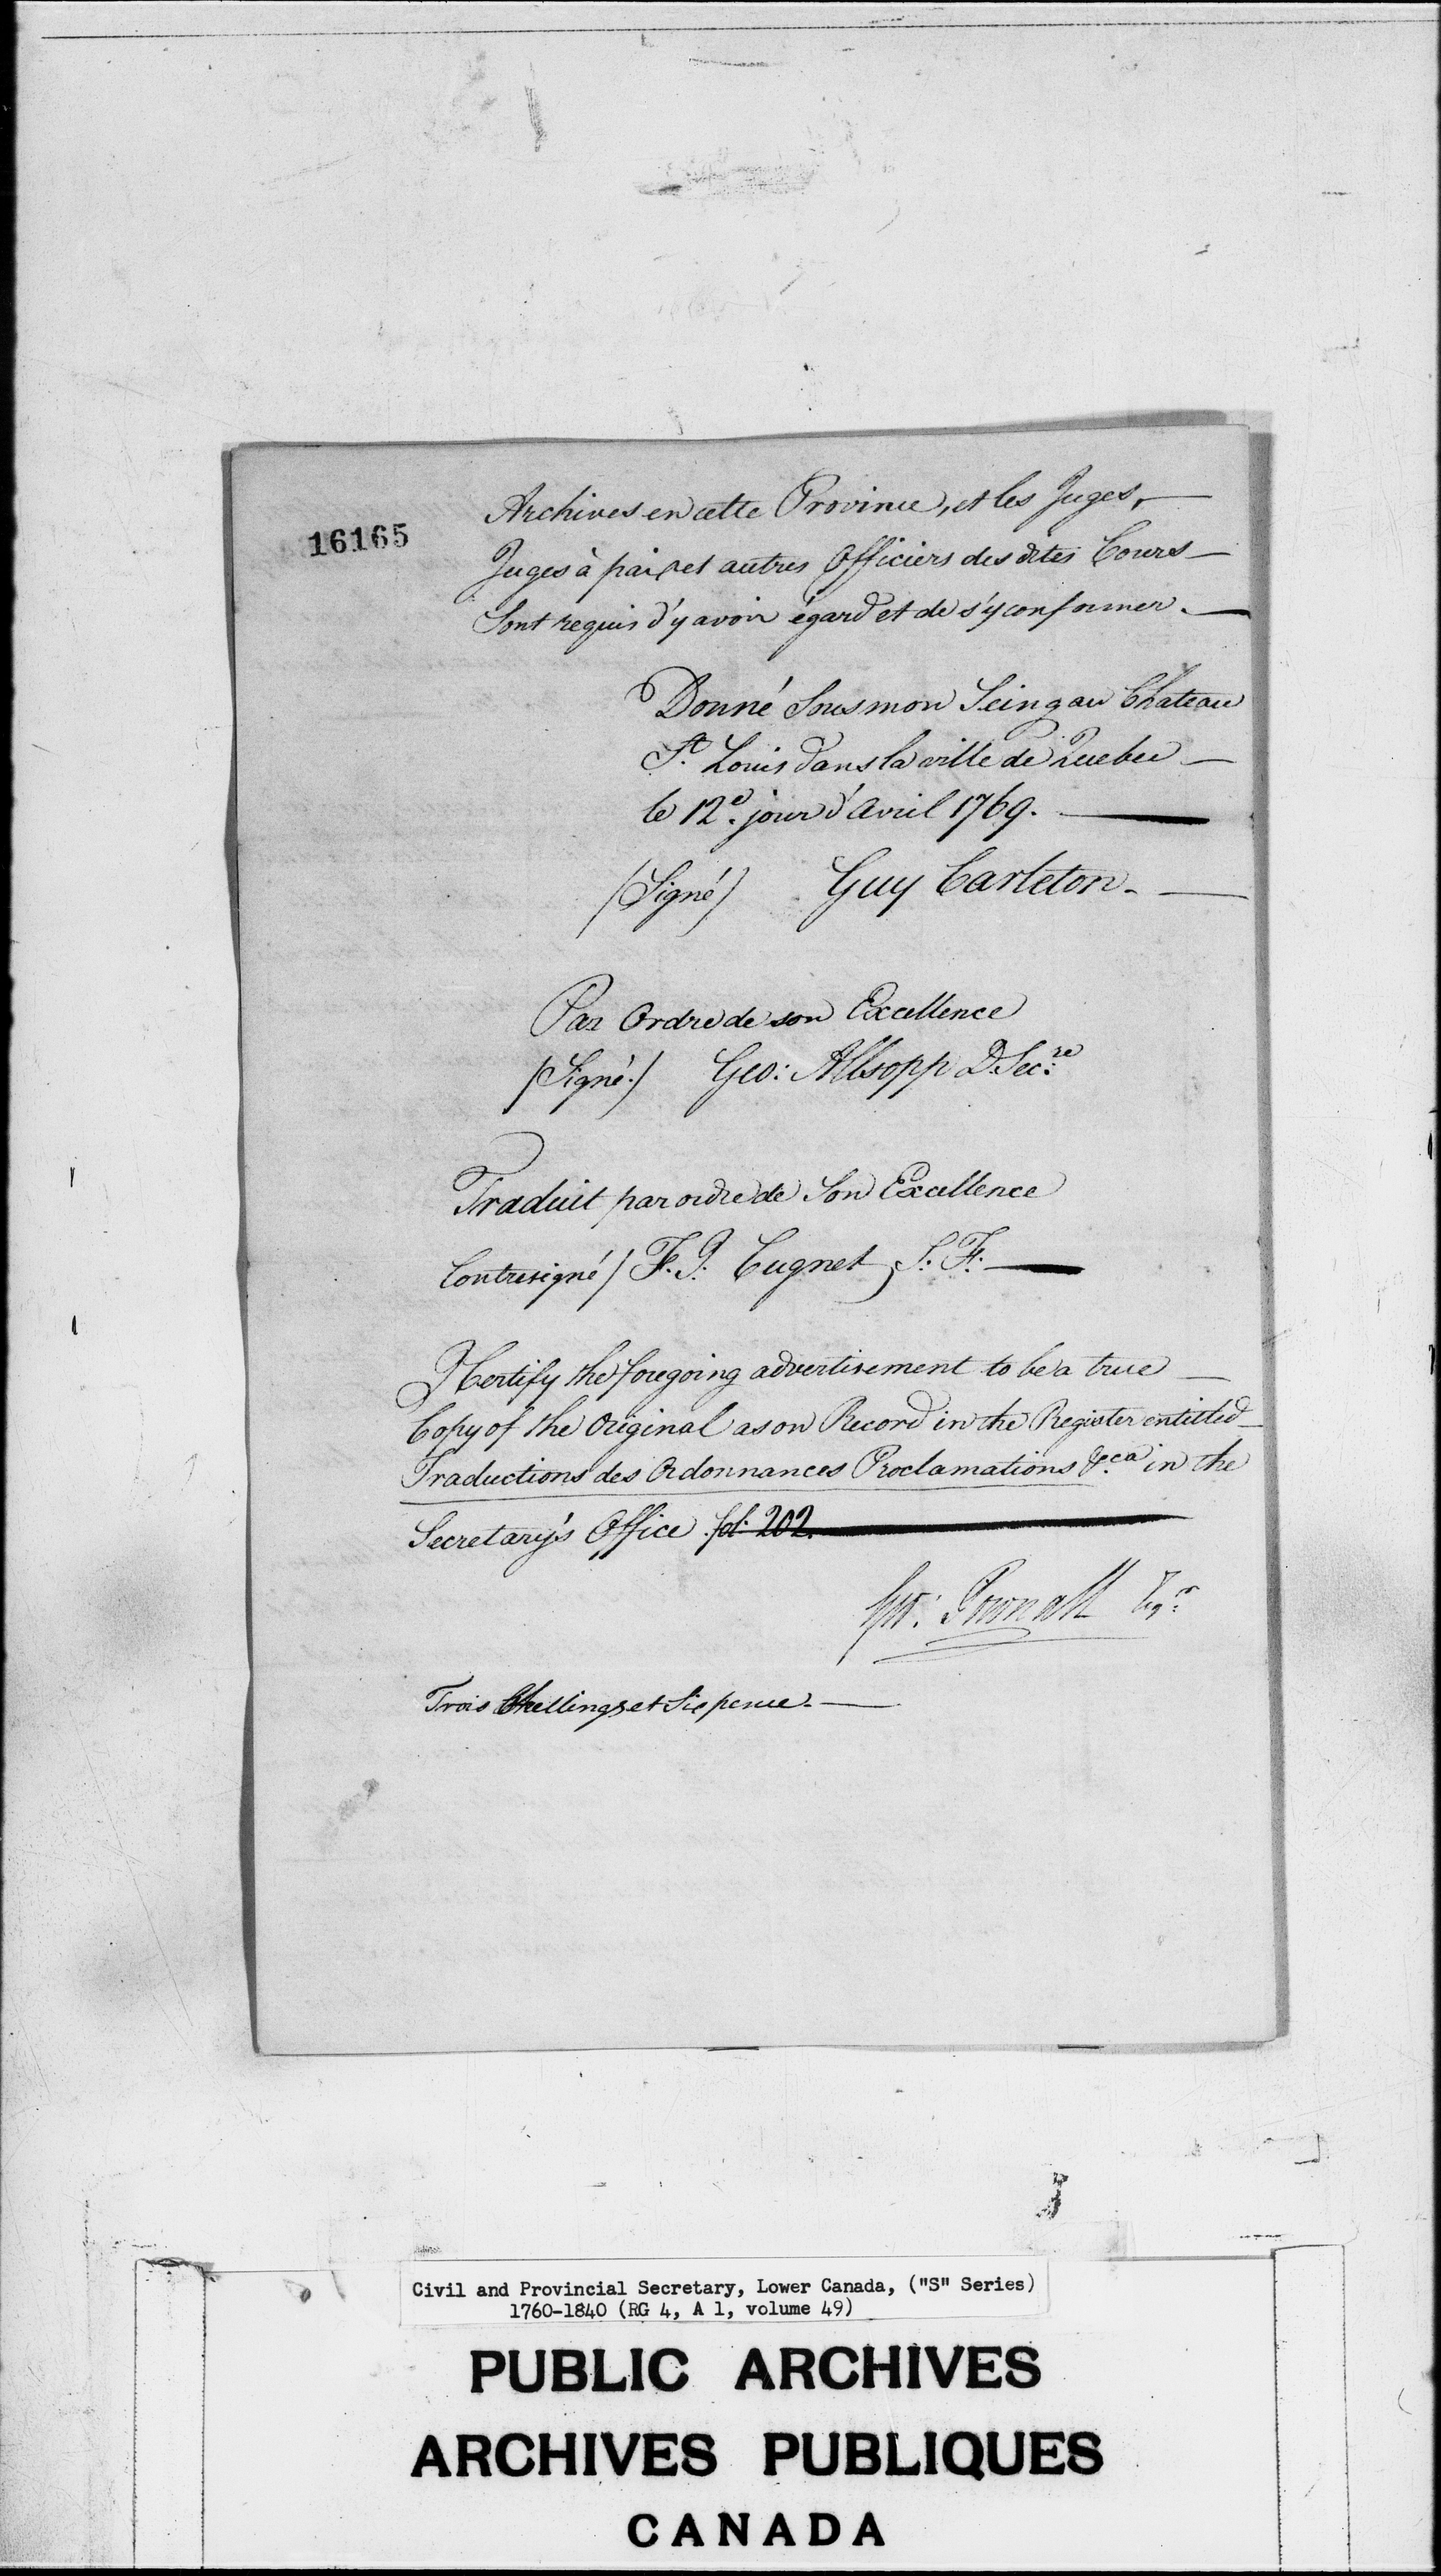 16165
Archives en cette Province, et les Juges,
Juges à paix et autres Officiers des dites Cours
Sont requis d'y avoir égard et de s'y conformer.
Donné Sous mon Seing au Chateau
St. Louis dans la ville de Quebec
le 12e. jour d'Avril 1769.
(Signé) Guy Carleton.
Par Ordre de son Excellence
(Signé.) Geo: Allsopp D. Sec:re
Traduit par ordre de Son Excellence
Contresigné) F. J. Cugnet, S. F.
I Certify the foregoing advertisement to be a true
Copy of the Original as on Record in the Register entitled
Traductions des Ordonnances Proclamations &ca in the
Secretary's Office fol. 202.
Geo: Pownall
Trois Chellings et Sie pence.
Civil and Provincial Secretary, Lower Canada, ("S" Series)
1760-1840 (RG 4, A 1, volume 49)
PUBLIC ARCHIVES
ARCHIVES PUBLIQUES
CANADA